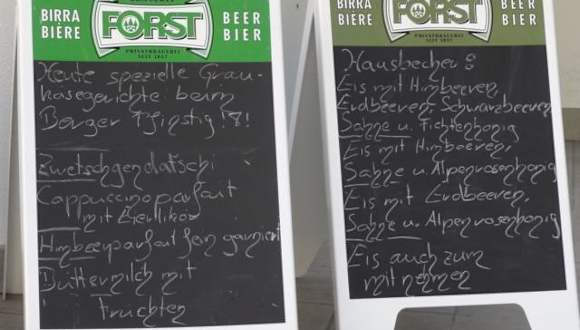 BIRRA
BIÈRE
FORST
PRIVATBRAUEREI
SEIT 1857
BEER
BIER
Heute spezielle Grau-
käsegerichte beim
Berger Pfinstig!!
Zwetschgendatschi
Cappuccinoparfait
mit Eierlikör
Himbeerparfait fein garniert
Buttermilch mit
Früchten
BIRRA
BIÈRE
FORST
PRIVATBRAUEREI
SEIT 1857
BEER
BIER
Hausbecher:
Eis mit Himbeeren,
Erdbeeren, Schwarzbeeren
Sahne u. Fichtenhonig
Eis mit Himbeeren,
Sahne u. Alpenrosenhonig
Eis mit Erdbeeren,
Sahne u. Alpenrosenhonig
Eis auch zum
mitnehmen